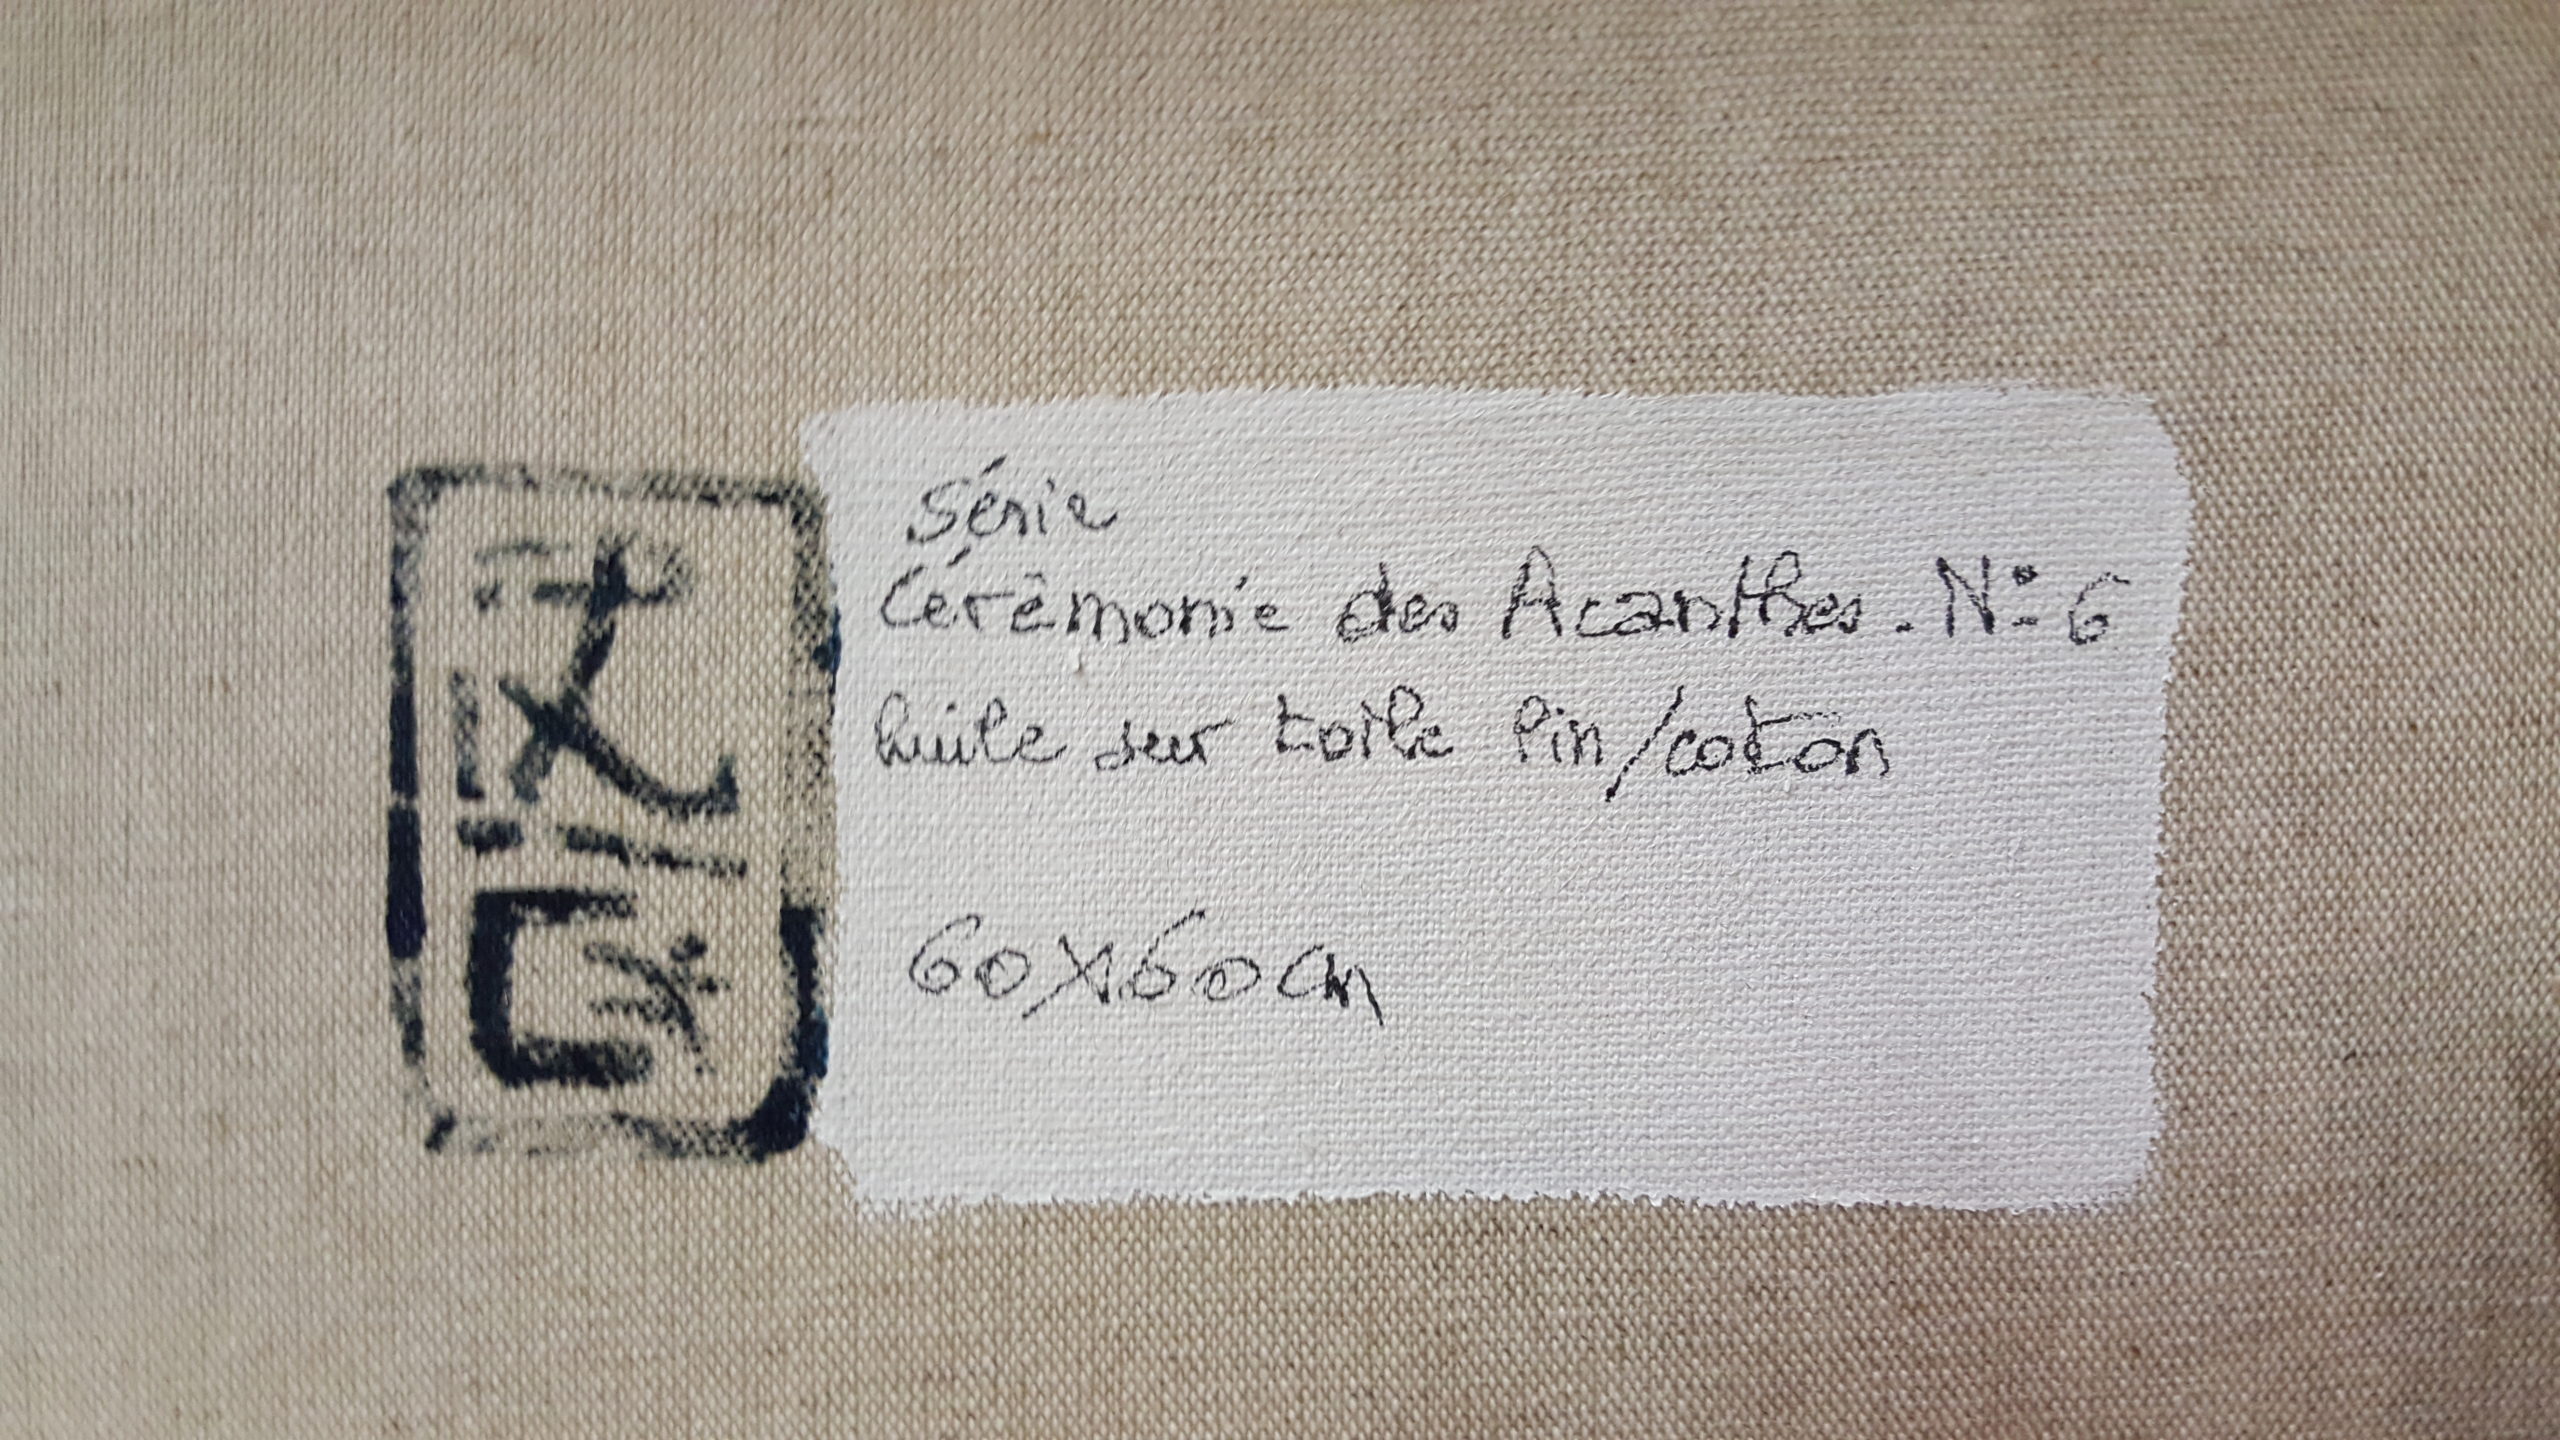 Série
Cérémonie des Acanthes. N° 6
huile sur toile lin/coton
60x60cm